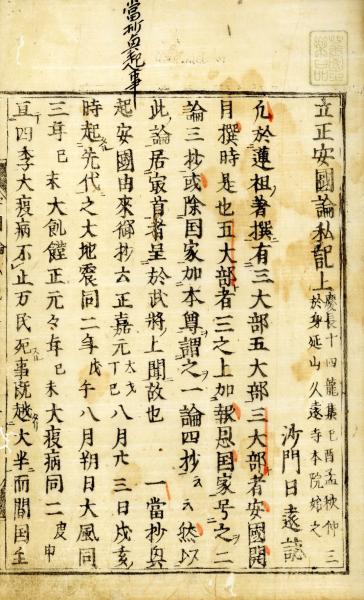 當抄興起人事
立正安國論私記上 慶長十四龍集己酉孟秋仲三
於身延山久遠寺本院始之
沙門日遠誌
凡於蓮祖著撰有三大部五大部三大部者安國開
目撰時是也五大部者三之上加報恩國家号之二
論三抄或除国家加本尊謂之一論四抄云云然以
此論居最首者呈於武將上聞故也 一當抄興
起安國由來御抄六正嘉元太歳丁巳八月廿三日戌亥
時起先代之大地震同二年戊午八月朔日大風同
三年己未大飢饉正元々年己未大疫病同二庚申
亘四季大疫病不止万民死事既越大半而間国主